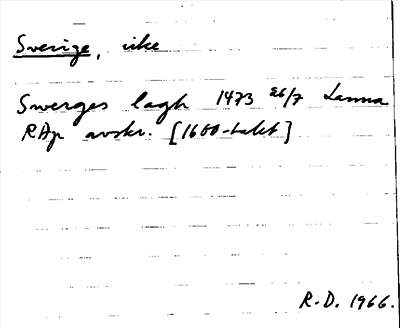 Sverige, rike
Swerges lagh 1473 26/7 Lanna
RAp avskr. [1600-talet]
R.D. 1966.